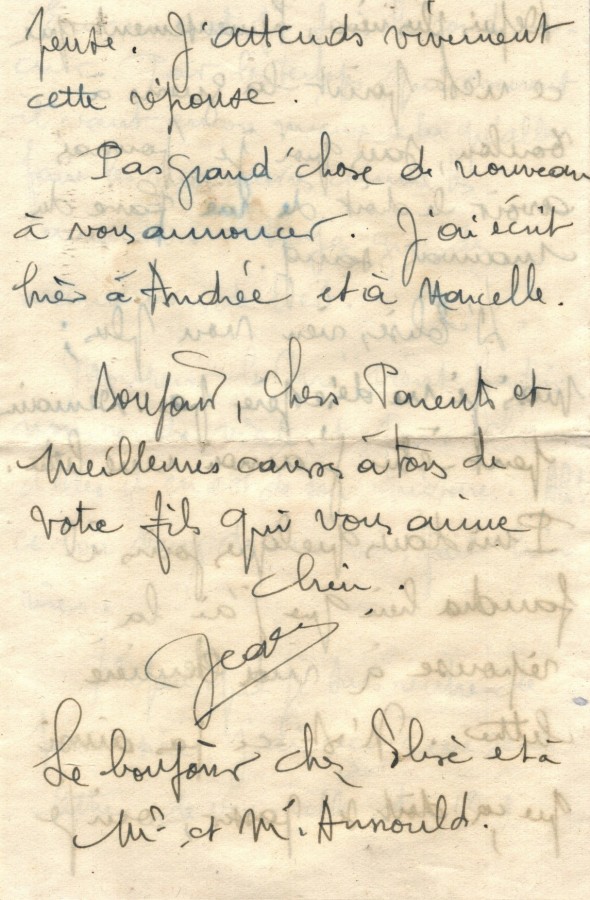 pense. J'attends vivement
cette réponse.
Pas grand'chose de nouveau
à vous annoncer. J'ai écrit
hier à Andrée et à Marcelle.
Bonjour, chers Parents et
meilleures caresses à tous de
votre fils qui vous aime
bien.
Jean
Le bonjour chez Elisé et à
Mr. et Me. Arnould.